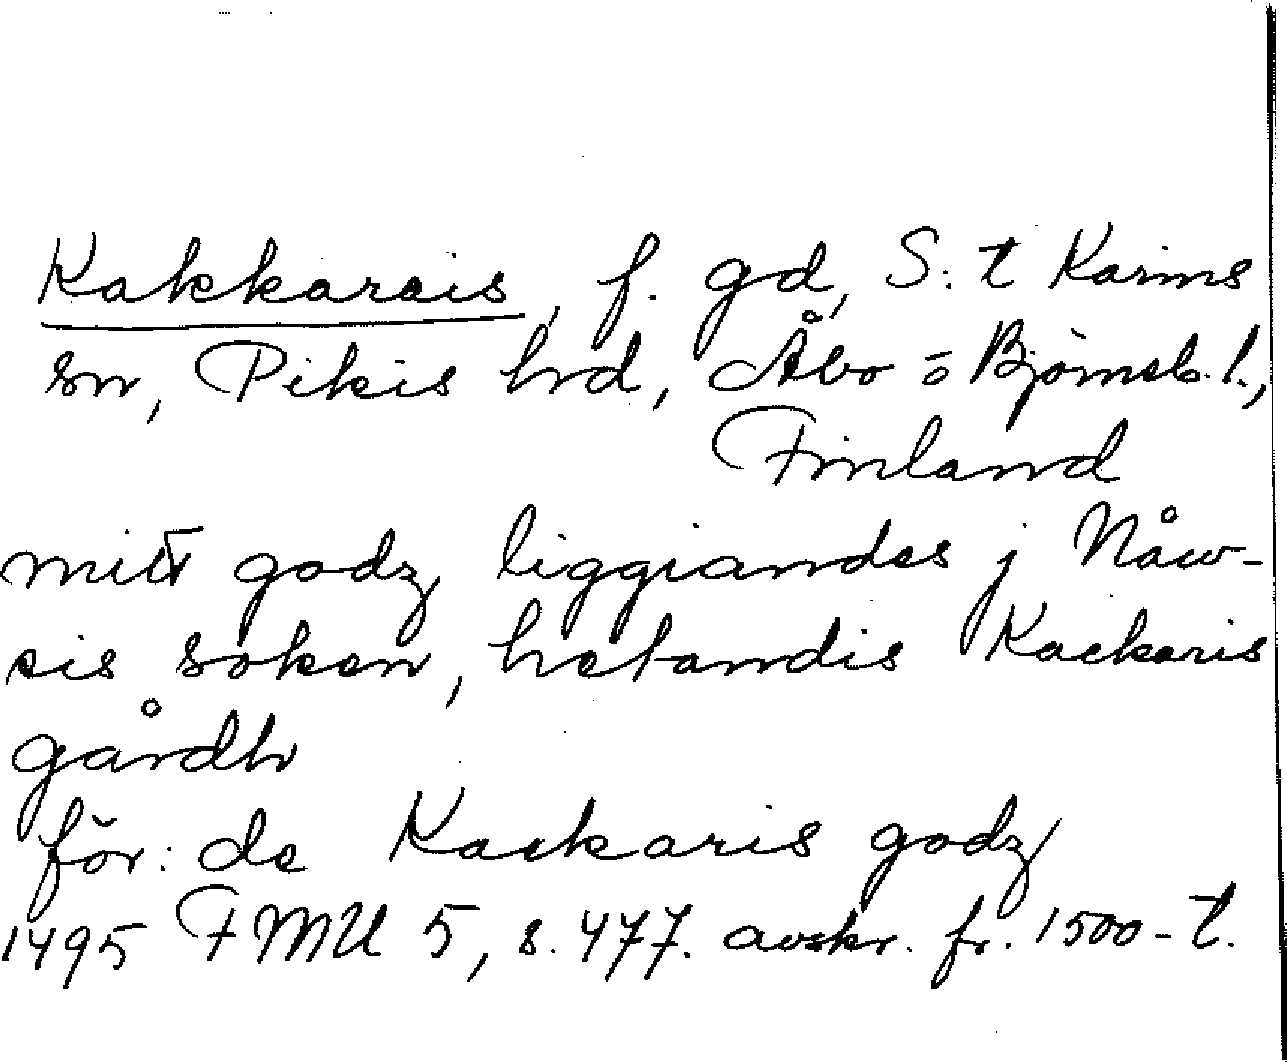 Kakkarais, f. gd, S:t Karins
sn, Pikis hrd, Åbo o Björneb. l.,
Finland
mitt godz liggiandes j Nåw-
sis soken, hetandis Kackaris
gårdh
för: de Kackaris godz
1495 FMU 5, s. 477. avskr. fr. 1500-t.